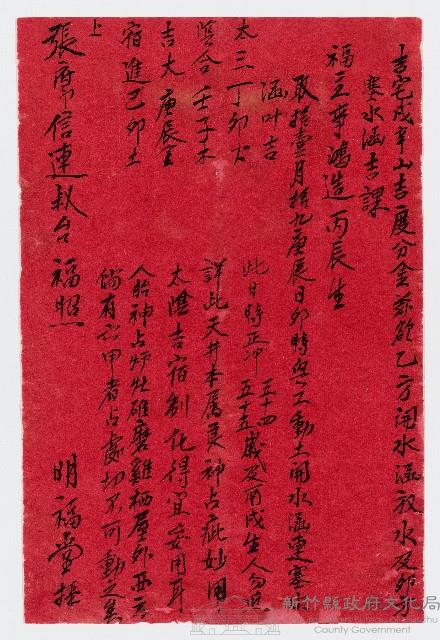 吉宅戌辛山吉度分金茲欲乙方開水涵放水及卯方
塞水涵吉課
福主尊鴻造丙辰生
取拾壹月拾九庚辰日卯時興工動土開水涵連塞
涵叶吉
太三丁卯火
陰合壬子木
吉大庚辰金
宿進己卯土
此日時正沖三十四五十五歲及丙戌生人勿近
詳此天井本屬畏神占疵妙用
太陰吉宿制化得宜妥用耳
人胎神占炉灶碓磨雞栖屋外西
倘有六甲者占處切不可動之
上
張席信連叔台福照
明福堂
新竹縣政府文化局
County Government